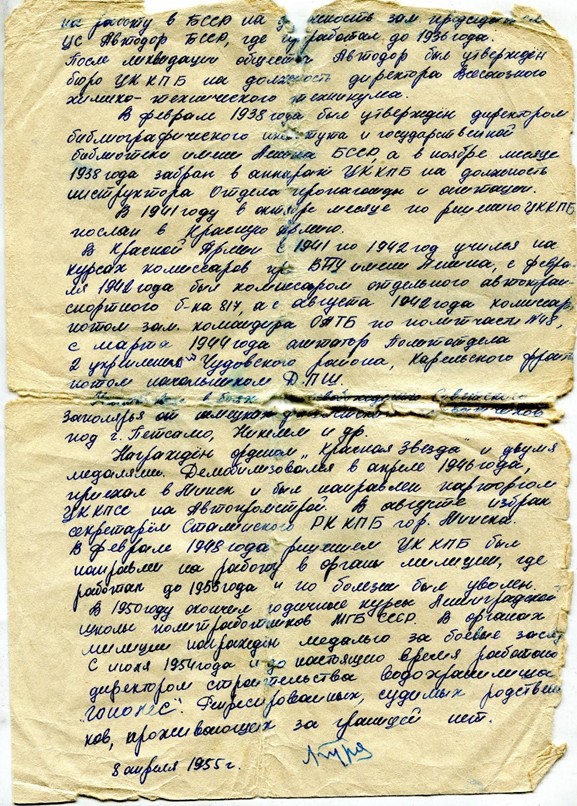 на работу в БССР на должность зам председателя
ЦС Автодор БССР, где работал до 1936 года.
После ликвидации общества Автодор был утверждён
бюро ЦК КПБ на должность директора Всесоюзного
химико-технического техникума.
В феврале 1938 года был утверждён директором
библиографического института и государственной
библиотеки имени Ленина БССР, а в ноябре месяце
1938 года забран в аппарат ЦК КПБ на должность
инструктора Отдела пропаганды и агитации.
В 1941 году в октябре месяце по решению ЦК КПБ
послан в Красную Армию.
В Красной Армии с 1941 по 1942 год учился на
курсах комиссаров при ВПУ имени Ленина, с февра-
ля 1942 года был комиссаром отдельного автотран-
спортного б-на 817, а с августа 1942 года комиссар
потом зам. командира ОАТБ по политчасти №48,
с марта 1944 года агитатор Политотдела
2 укреплённого Чудовского района, Карельского фрон
потом начальником Д.П.Ш.
в боях Советского
заполярья от немецких
под г. Петсамо, Никелем и др.
Награждён орденом „Красная Звезда" и двумя
медалями. Демобилизовался в апреле 1946 года,
приехал в Минск и был направлен парторгом
ЦК КПСС на Автопромстрой. В августе избран
секретарём Сталинского РК КПБ гор. Минска.
В феврале 1948 года решением ЦК КПБ был
направлен на работу в органы милиции, где
работал до 1953 года и по болезни был уволен.
В 1950 году окончил годичные курсы Ленинградской
школы политработников МГБ СССР. В органах
милиции награждён медалью за боевые засл
С июня 1954 года и до настоящего время работаю
директором строительства водохранилища
„Гонолес". Репрессированных, судимых родствен
ков, проживающих за границей нет.
8 апреля 1955 г.